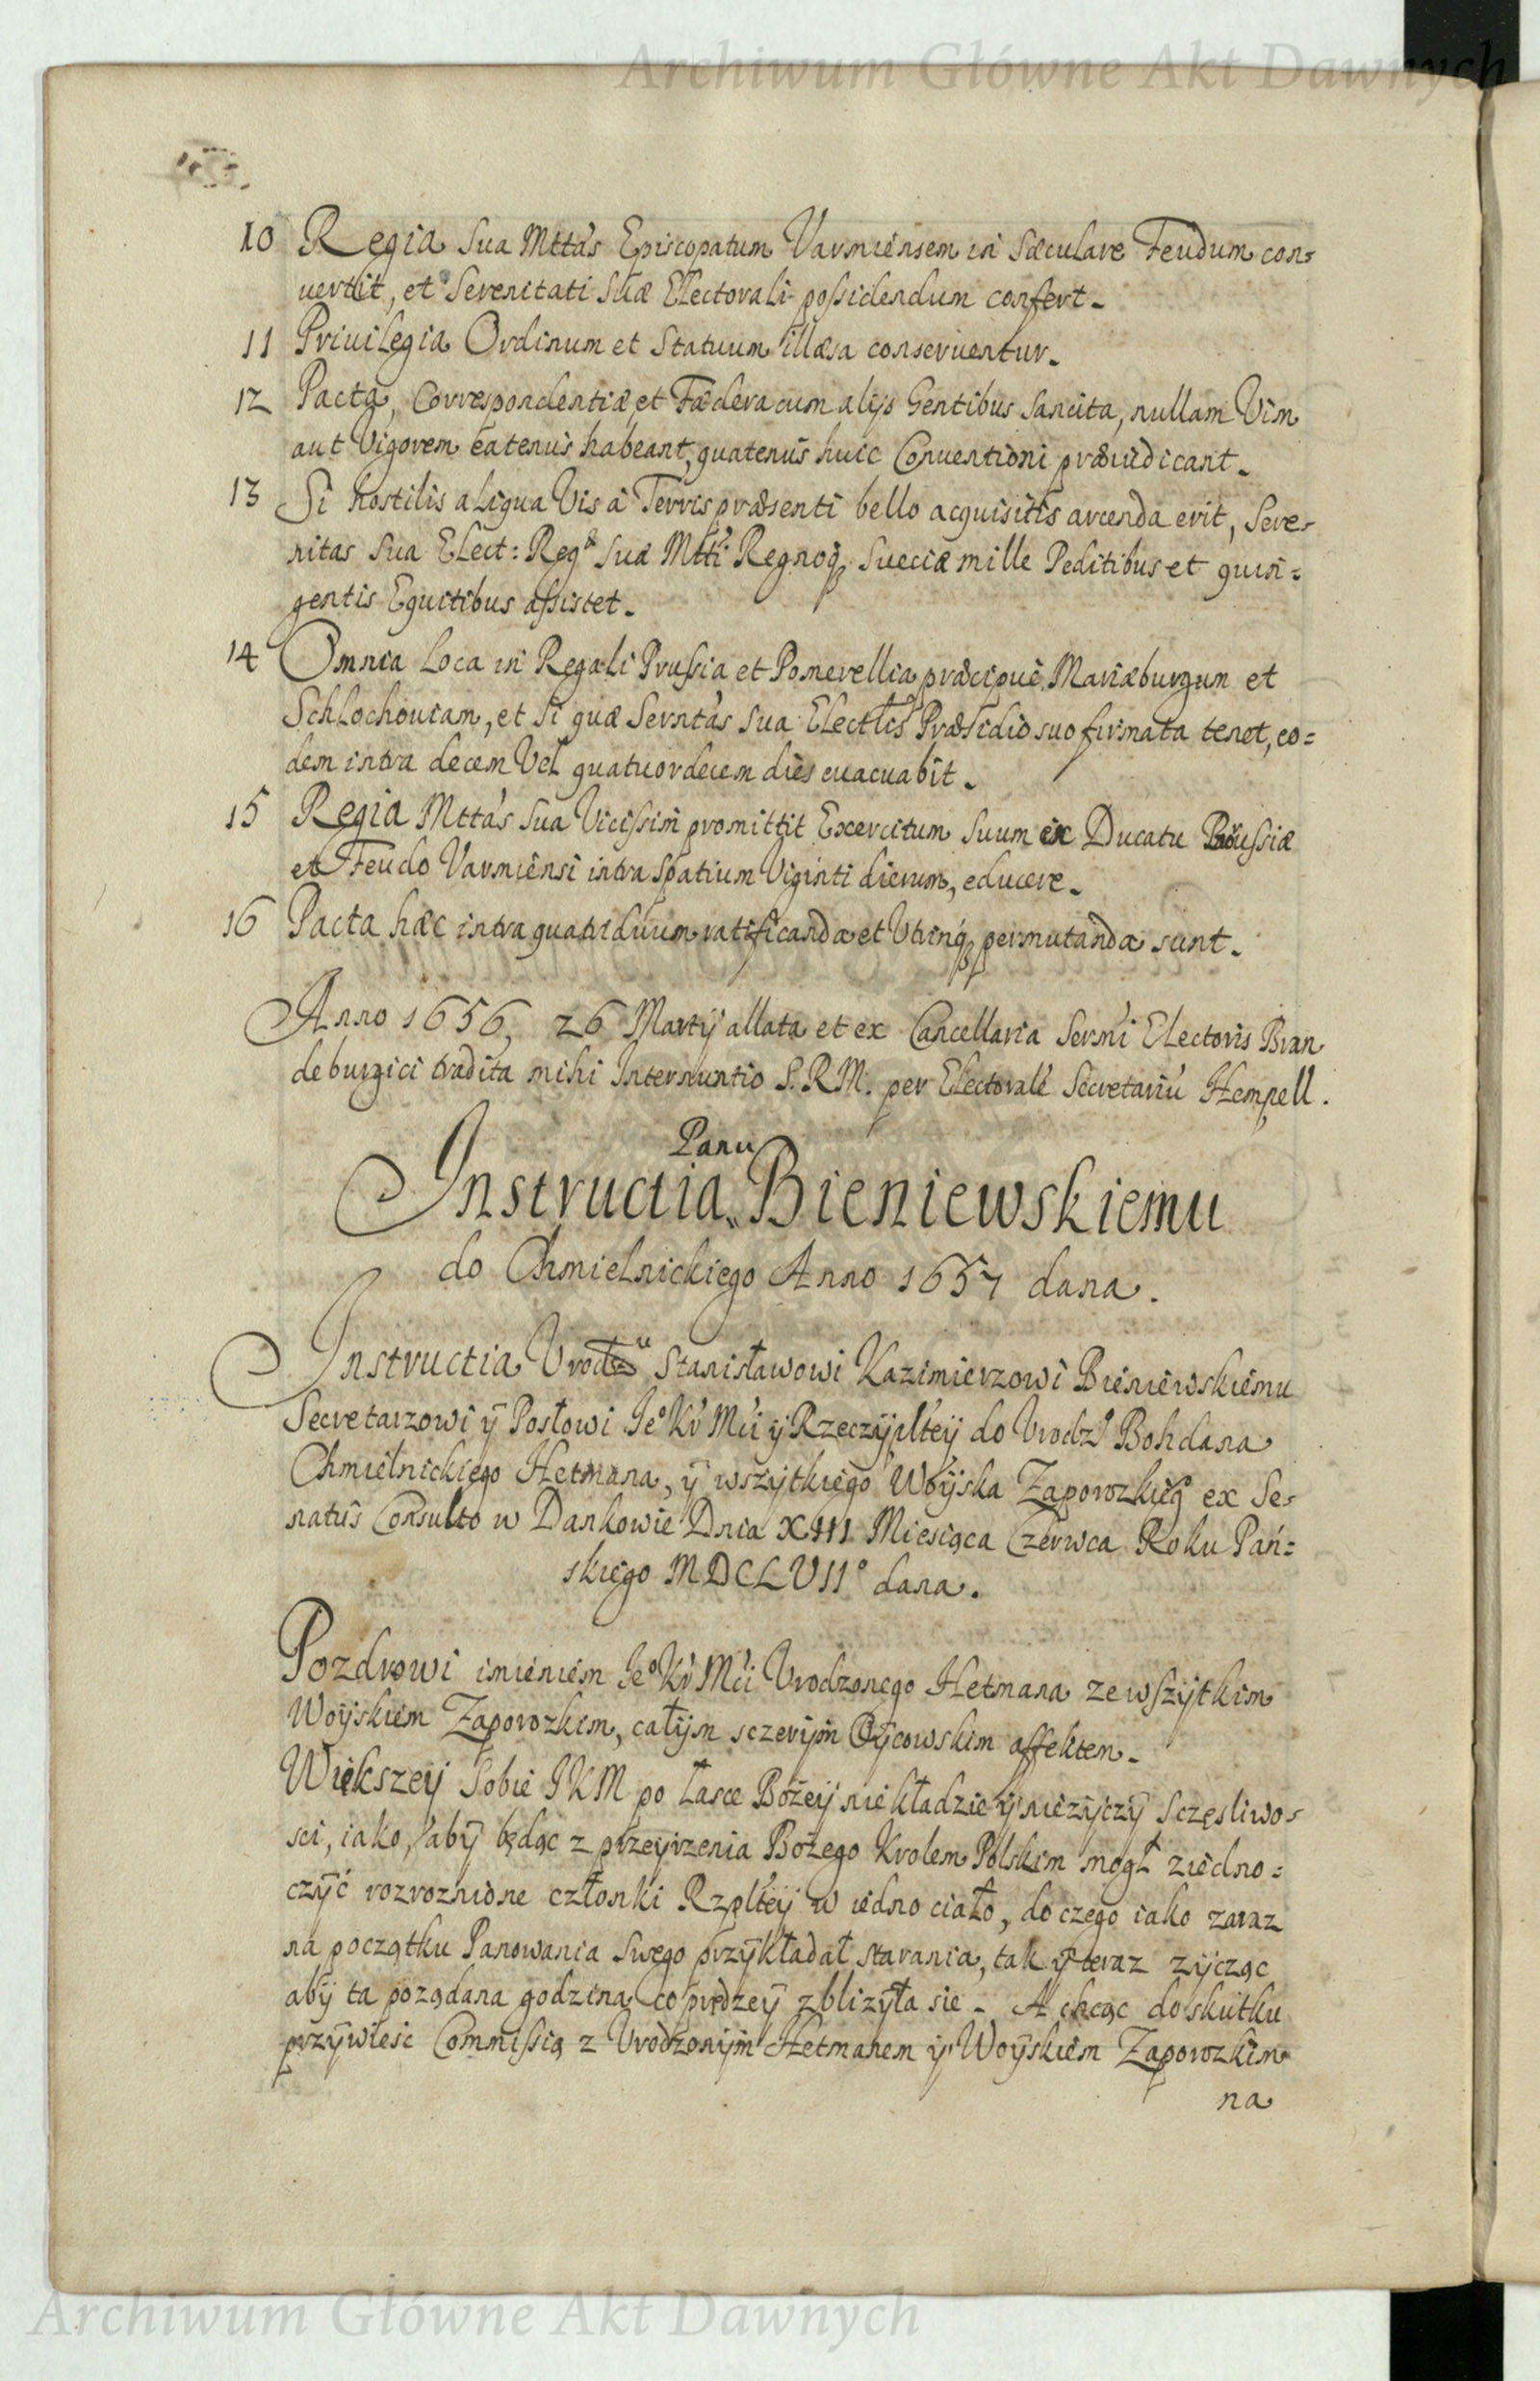 Archiwum Główne Akt Dawnych
10 Regia Sua Mttas Episcopatum Varmiensem in Sæculare Feudum con-
uertit, et Serenitati Suæ Electorali possidendum confert.
11 Priuilegia Ordinum et Statuum illæsa conseruentur.
12 Pacta, Correspondentiæ et Fœdera cum alijs Gentibus Sancita, nullam Vim
aut Vigorem eatenùs habeant, quatenùs huic Conuentioni præiudicant.
13 Si hostilis aliqua Vis à Terris præsenti bello acquisitis arcenda erit, Sere-
nitas Sua Elect: Regæ Suæ Mtti Regnoq₃ Sueciæ mille Peditibus et quin=
gentis Equitibus assistet.
14 Omnia Loca in Regali Prussia et Pomerellia præcipuè Mariæburgum et
Schlochouiam, et si quæ Serntas Sua Electlis Præsidio suo firmata tenet, eo=
dem intra decem Vel quatuordecem dies euacuabit.
15 Regia Mttas Sua Vicissim promittit Exercitum Suum ex Ducatu Prussiæ
et Feudo Varmiensi intra Spatium Viginti dierum, educere.
16 Pacta hæc intra quatriduum ratificanda et Utrinq₃ permutanda sunt.
Anno 1656, 26 Martij allata et ex Cancellaria Sermi Electoris Bran
deburgici tradita mihi Internuntio S.R.M. per Electoralē Secretariū Hempell.
Panu
Instructia Bieniewskiemu
do Chmielnickiego Anno 1657 dana.
Instructia Vrodzu Stanisławowi Kazimierzowi Bieniewskiemu
Secretarzowi ÿ Posłowi Jeo Kr Mci ÿ Rzeczÿpltey do Vrodzo Bohdana
Chmielnickiego Hetmana, ÿ wszÿtkiego Woÿska Zaporozkiego ex Se-
natus Consulto w Dankowie Dnia XIII Miesiąca Czerwca Roku Pań=
skiego MDCLVIIo dana.
Pozdrowi imieniem Jeo Kr Mci Vrodzonego Hetmana ze wszÿtkim
Woÿskiem Zaporozkim, całÿm sczerÿm Oÿcowskim affektem.
Większeÿ Sobie JKM po łasce Bożeÿ nie kładzie ÿ nieżÿczÿ Sczęsliwo-
sci, iako, abÿ będąc z przeÿrzenia Bożego Krolem Polskim mogł ziedno=
czÿć rozroznione członki Rzplteÿ w iedno ciało, do czego iako zaraz
na początku Panowania Swego przÿkładał starania, tak ÿ teraz zÿcząc
abÿ ta pozadana godzina co prędzeÿ zbliżÿła sie. A chcąc do skutku
przÿwiesc Commissią z Vrodzonÿm Hetmanem ÿ Woÿskiem Zaporozkim
na
Archiwum Główne Akt Dawnych